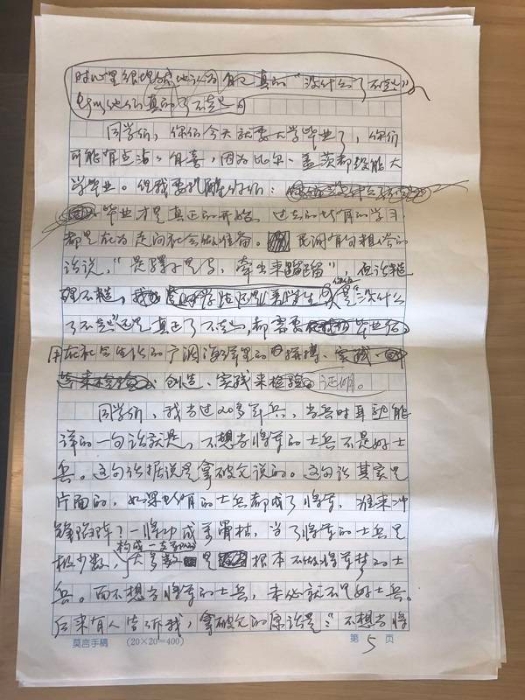 时心里很
自己真的“没什么了不起”
他们真的了不起
同学们，你们今天就要大学毕业了，你们
可能有点沾沾自喜，因为比尔·盖茨都没能大
学毕业。但我要提醒你们：
毕业才是真正的开始，过去的所有的学习
都是在为走向社会做准备。民间有句粗俗的
话说，“是骡子是马，牵出来蹓蹓”，但话糙
理不糙，你是“没什么
了不起”还是真正了不起，都需要毕业后
用在社会生活的广阔海洋里的拼搏、
创造、实践来检验。证明。
同学们，我当过20多年兵，当兵时耳熟能
详的一句话就是，不想当将军的士兵不是好士
兵。这句话据说是拿破仑说的。这句话其实是
片面的，如果所有的士兵都成了将军，谁来冲
锋陷阵？一将功成万骨枯，当了将军的士兵是
极少数，大多数是根本不做将军梦的士
兵。而不想当将军的士兵，未必就不是好士兵。
后来有人告诉我，拿破仑的原话是：“不想当将
莫言手稿 (20×20=400) 第5页